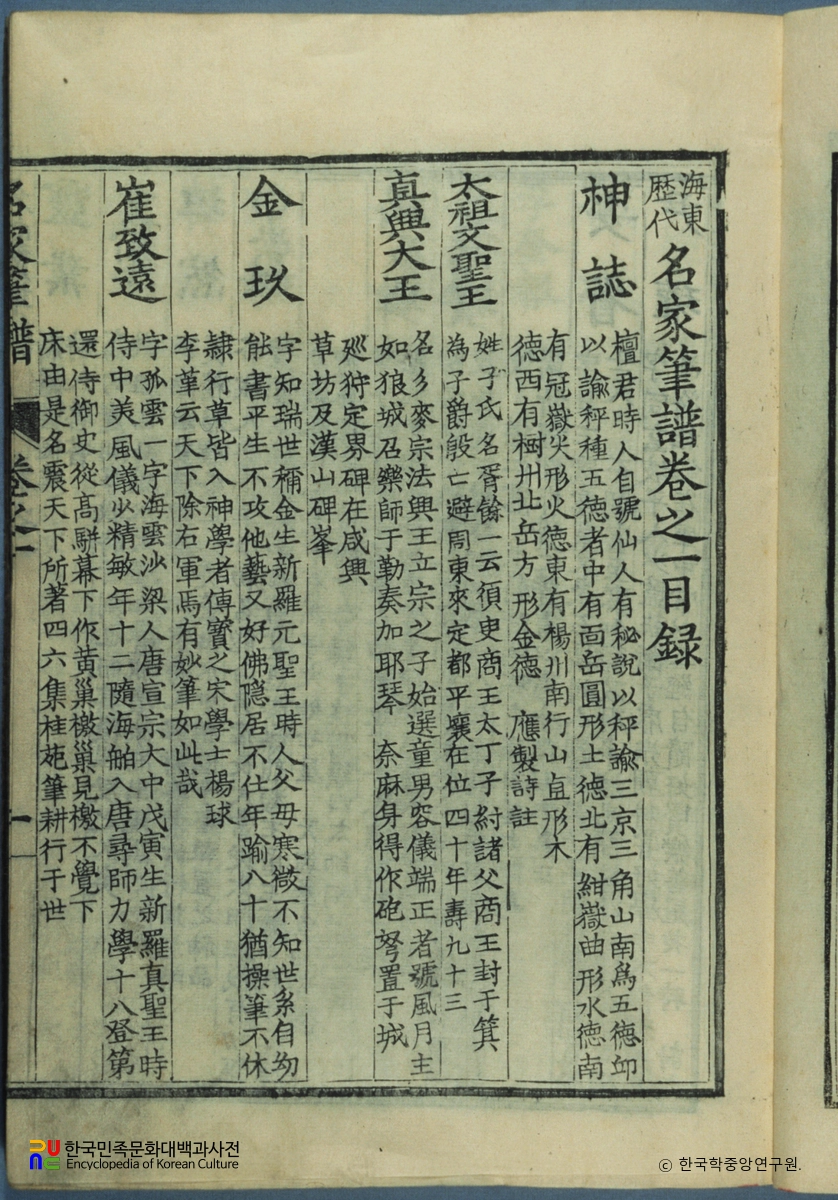 海東歷代名家筆譜卷之一目録
神誌
檀君時人自號仙人有秘說以秤諭三京三角山南爲五德丘
以諭秤種五德者中有面岳圓形土德北有紺嶽曲形水德南
有冠嶽尖形火德東有楊州南行山直形木
德西有樹州北岳方形金德 應製詩註
太祖文聖王
姓子氏名胥餘一云須臾商王太丁子紂諸父商王封于箕
為子爵殷亡避周東來定都平壤在位四十年壽九十三
真興大王
名彡麥宗法興王立宗之子始選童男容儀端正者號風月主
如狼城召樂師于勒奏加耶琴 奈麻身得作砲弩置于城
廵狩定界碑在咸興
草坊及漢山碑峯
金玖
字知瑞世稱金生新羅元聖王時人父母寒微不知世系自幼
能書平生不攻他藝又好佛隱居不仕年踰八十猶操筆不休
隷行草皆入神學者傳寶之宋學士楊球
李革云天下除右軍焉有妙筆如此哉
崔致遠
字孤雲一字海雲沙梁人唐宣宗大中戊寅生新羅真聖王時
侍中美風儀少精敏年十二隨海舶入唐尋師力學十八登第
還侍御史從高騈幕下作黄巢檄巢見檄不覺下
床由是名震天下所著四六集桂苑筆耕行于世
名家筆譜 卷之一 一
한국민족문화대백과사전
Encyclopedia of Korean Culture
ⓒ 한국학중앙연구원.